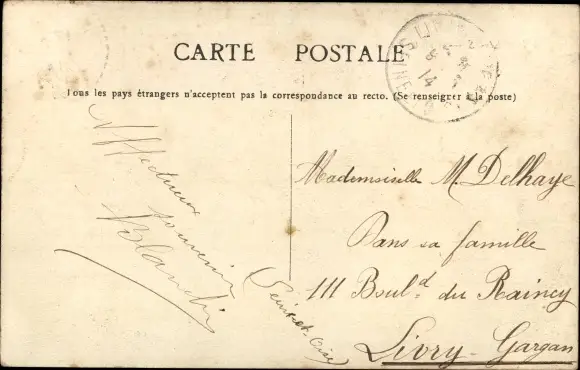 CARTE POSTALE
Tous les pays étrangers n'acceptent pas la correspondance au recto. (Se renseigner à la poste)
Affectueux
souvenir
Blanche
Mademoiselle M. Delhaye
Dans sa famille
111 Boul.d du Raincy
Livry-Gargan
(Seine et Oise)